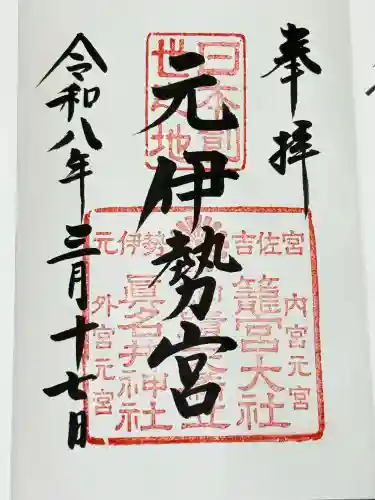 奉拝
元伊勢宮
令和八年三月十七日
日本創世之地
元伊勢
吉佐宮
内宮元宮
籠宮大社
眞名井神社
外宮元宮